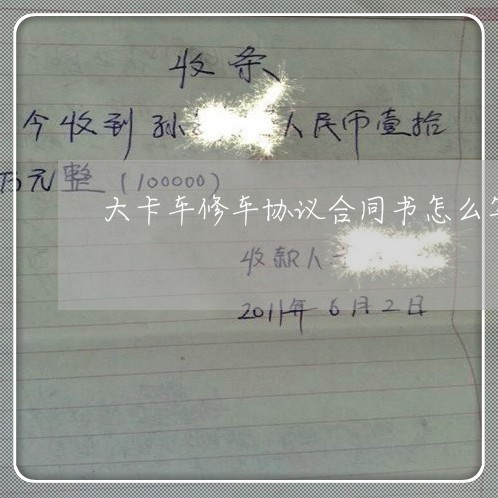 收条
今收到孙人民币壹拾
万元整(100000)
大卡车修车协议合同书怎么
收款人
2011年6月2日